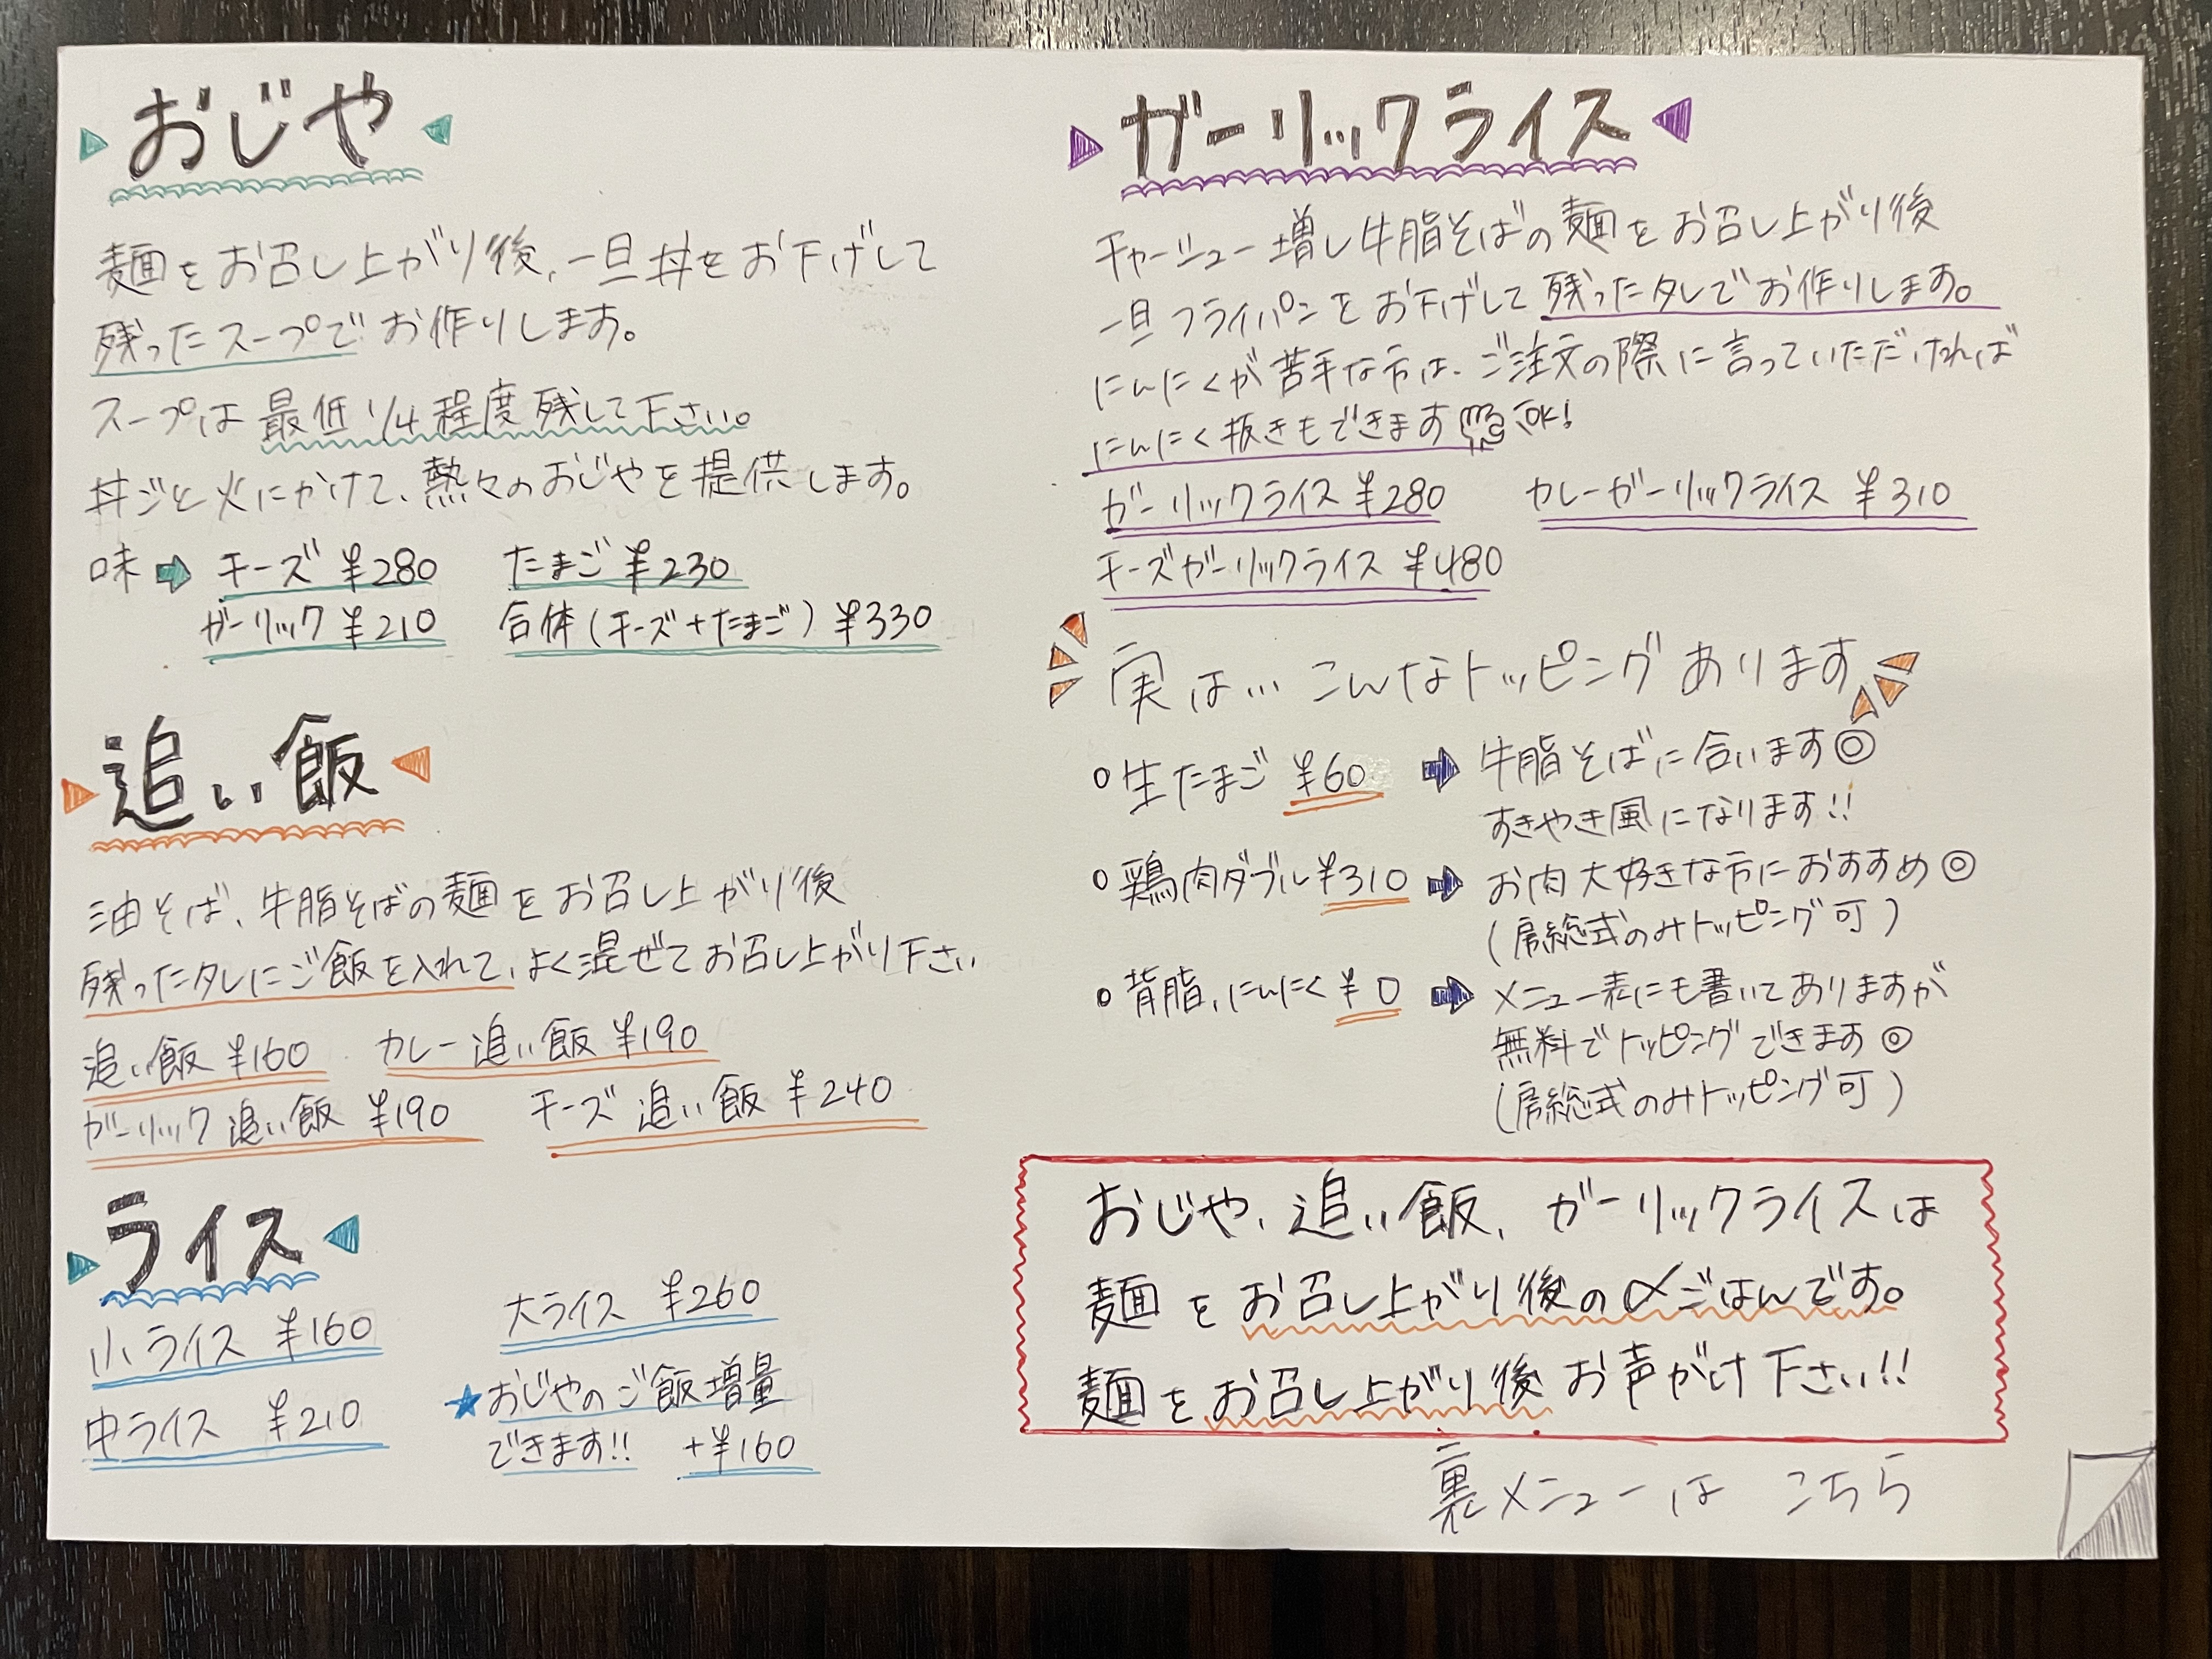 おじや
麺をお召し上がり後、一旦丼をお下げして
残ったスープでお作りします。
スープは最低1/4程度残して下さい。
丼ごと火にかけて、熱々のおじやを提供します。
味➡ チーズ ¥280 たまご ¥230
ガーリック ¥210 合体(チーズ+たまご) ¥330
追い飯
油そば、牛脂そばの麺をお召し上がり後
残ったタレにご飯を入れて、よく混ぜてお召し上がり下さい
追い飯 ¥160 カレー追い飯 ¥190
ガーリック追い飯 ¥190 チーズ追い飯 ¥240
ライス
小ライス ¥160 大ライス ¥260
中ライス ¥210 ★おじやのご飯増量
できます!! +¥160
ガーリックライス
チャーシュー増し牛脂そばの麺をお召し上がり後
一旦フライパンをお下げして残ったタレでお作りします。
にんにくが苦手な方は、ご注文の際に言っていただければ
にんにく抜きもできます OK!
ガーリックライス ¥280 カレーガーリックライス ¥310
チーズガーリックライス ¥480
実は…こんなトッピングあります
○生たまご ¥60 ➡ 牛脂そばに合います◎
すきやき風になります!!
○鶏肉ダブル ¥310 ➡ お肉大好きな方におすすめ◎
(房総式のみトッピング可)
○背脂、にんにく ¥0 ➡ メニュー表にも書いてありますが
無料でトッピングできます◎
(房総式のみトッピング可)
おじや、追い飯、ガーリックライスは
麺をお召し上がり後の〆ごはんです。
麺をお召し上がり後お声がけ下さい!!
裏メニューは こちら